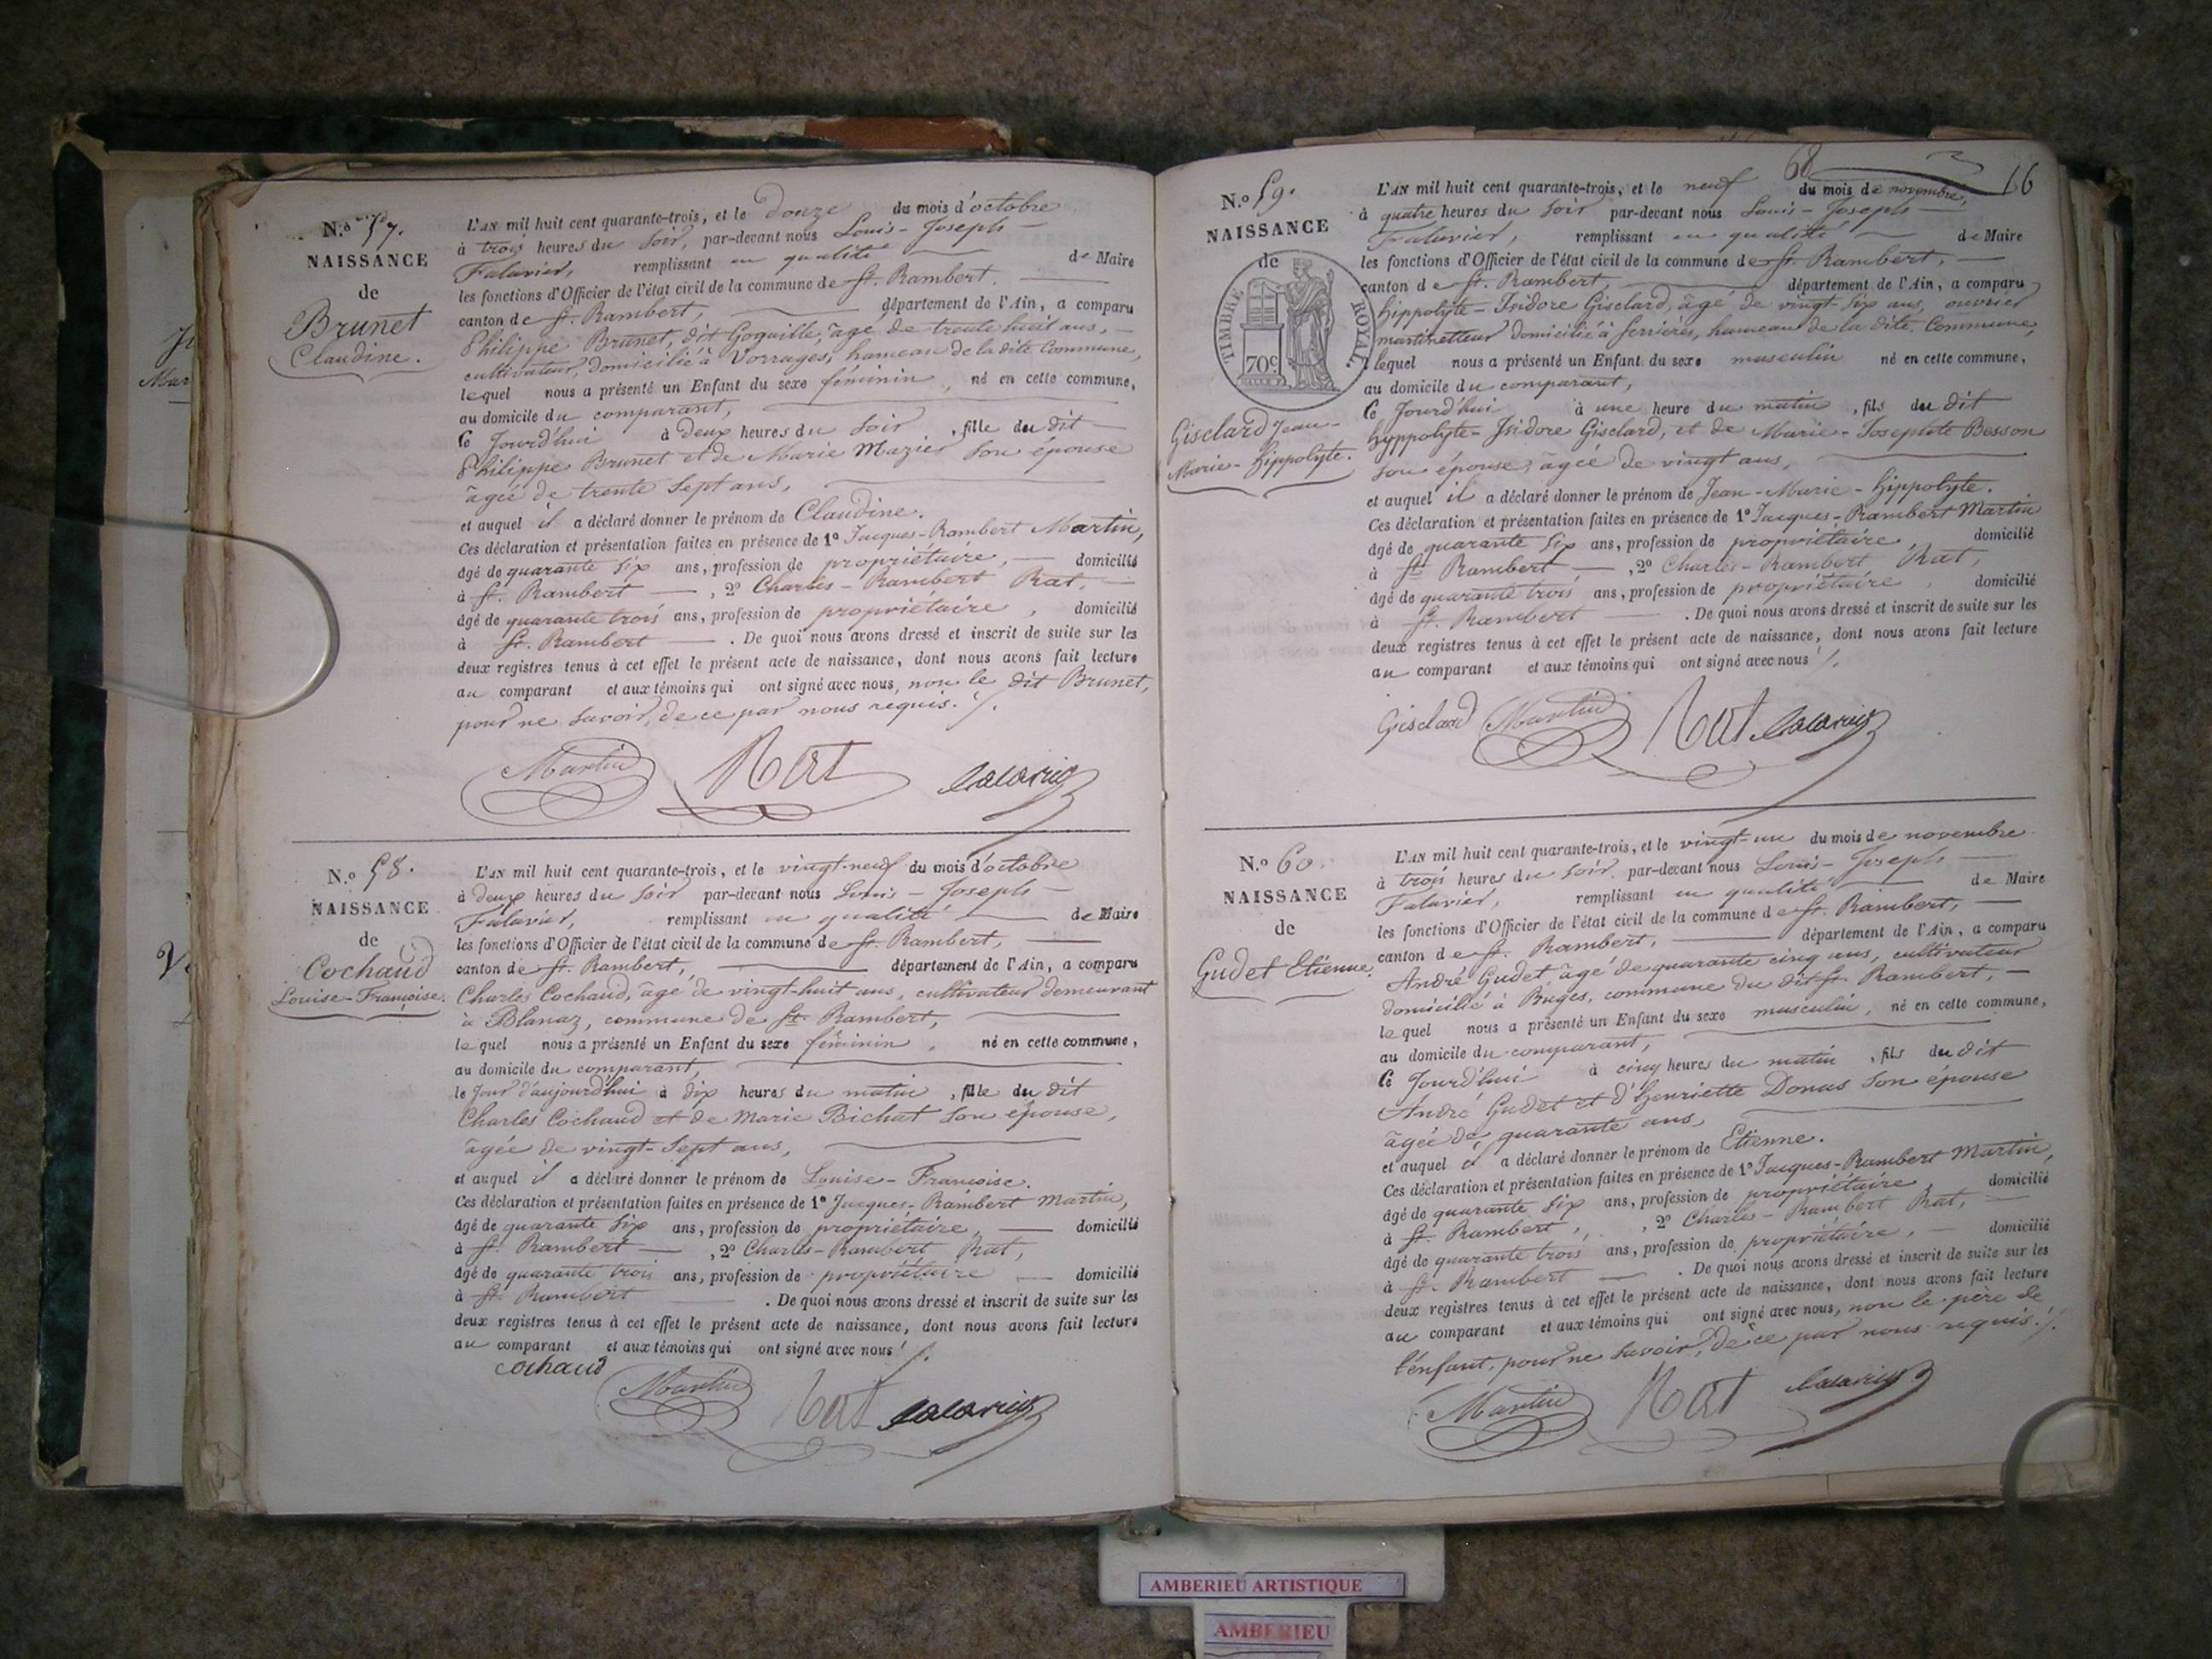 N.º 57.
NAISSANCE
de
Brunet
Claudine.
L'AN mil huit cent quarante-trois, et le douze du mois d'octobre
à trois heures du soir, par-devant nous Louis-Joseph
Falavier, remplissant en qualité de Maire
les fonctions d'Officier de l'état civil de la commune de St. Rambert,
canton de St. Rambert, département de l'Ain, a comparu
Philippe Brunet, dit Goquille, âgé de trente huit ans,
cultivateur, domicilié à Vorrages, hameau de la dite Commune,
lequel nous a présenté un Enfant du sexe féminin, né en cette commune,
au domicile du comparant,
Ce Jourd'hui à deux heures du soir, fille du dit
Philippe Brunet et de Marie Mazier son épouse
âgée de trente sept ans,
et auquel il a déclaré donner le prénom de Claudine.
Ces déclaration et présentation faites en présence de 1º Jacques-Rambert Martin,
âgé de quarante six ans, profession de propriétaire, domicilié
à St. Rambert, 2º Charles-Rambert Rat,
âgé de quarante trois ans, profession de propriétaire, domicilié
à St. Rambert. De quoi nous avons dressé et inscrit de suite sur les
deux registres tenus à cet effet le présent acte de naissance, dont nous avons fait lecture
au comparant et aux témoins qui ont signé avec nous, non le dit Brunet,
pour ne savoir, de ce par nous requis. /.
Martin Rat
N.º 58.
NAISSANCE
de
Cochaud
Louise-Françoise.
L'AN mil huit cent quarante-trois, et le vingt-neuf du mois d'octobre
à deux heures du soir par-devant nous Louis-Joseph
Falavier, remplissant en qualité de Maire
les fonctions d'Officier de l'état civil de la commune de St. Rambert,
canton de St. Rambert, département de l'Ain, a comparu
Charles Cochaud, âgé de vingt-huit ans, cultivateur demeurant
à Blanaz, commune de St. Rambert,
lequel nous a présenté un Enfant du sexe féminin, né en cette commune,
au domicile du comparant,
le Jour d'aujourd'hui à dix heures du matin, fille du dit
Charles Cochaud et de Marie Bichat son épouse,
âgée de vingt-sept ans,
et auquel il a déclaré donner le prénom de Louise-Françoise.
Ces déclaration et présentation faites en présence de 1º Jacques-Rambert Martin,
âgé de quarante six ans, profession de propriétaire, domicilié
à St. Rambert, 2º Charles-Rambert Rat,
âgé de quarante trois ans, profession de propriétaire domicilié
à St. Rambert. De quoi nous avons dressé et inscrit de suite sur les
deux registres tenus à cet effet le présent acte de naissance, dont nous avons fait lecture
au comparant et aux témoins qui ont signé avec nous /.
Cochaud
Martin Rat
68
16
N.º 59.
NAISSANCE
de
TIMBRE ROYAL
70c
Gisclard Jean-
Marie-Hippolyte.
L'AN mil huit cent quarante-trois, et le neuf du mois de novembre,
à quatre heures du soir par-devant nous Louis-Joseph
Falavier, remplissant en qualité de Maire
les fonctions d'Officier de l'état civil de la commune de St. Rambert,
canton de St. Rambert, département de l'Ain, a comparu
Hippolyte-Isidore Gisclard, âgé de vingt-six ans, ouvrier
martinetteur domicilié à Serrières, hameau de la dite Commune,
lequel nous a présenté un Enfant du sexe masculin né en cette commune,
au domicile du comparant,
Ce Jourd'hui à une heure du matin, fils du dit
Hyppolyte-Isidore Gisclard, et de Marie-Josephte Besson
son épouse, âgée de vingt ans,
et auquel il a déclaré donner le prénom de Jean-Marie-Hippolyte.
Ces déclaration et présentation faites en présence de 1º Jacques-Rambert Martin
âgé de quarante six ans, profession de propriétaire, domicilié
à St. Rambert, 2º Charles-Rambert Rat,
âgé de quarante trois ans, profession de propriétaire, domicilié
à St. Rambert. De quoi nous avons dressé et inscrit de suite sur les
deux registres tenus à cet effet le présent acte de naissance, dont nous avons fait lecture
au comparant et aux témoins qui ont signé avec nous /.
Gisclard Martin Rat
N.º 60.
NAISSANCE
de
Gudet Etienne.
L'AN mil huit cent quarante-trois, et le vingt-un du mois de novembre
à trois heures du soir par-devant nous Louis-Joseph
Falavier, remplissant en qualité de Maire
les fonctions d'Officier de l'état civil de la commune de St. Rambert,
canton de St. Rambert, département de l'Ain, a comparu
André Gudet âgé de quarante cinq ans, cultivateur
domicilié à Buges, commune du dit St. Rambert,
lequel nous a présenté un Enfant du sexe masculin, né en cette commune,
au domicile du comparant,
Ce Jourd'hui à cinq heures du matin, fils du dit
André Gudet et d'Henriette Donus son épouse
âgée de quarante ans,
et auquel il a déclaré donner le prénom de Etienne.
Ces déclaration et présentation faites en présence de 1º Jacques-Rambert Martin,
âgé de quarante six ans, profession de propriétaire, domicilié
à St. Rambert, 2º Charles-Rambert Rat,
âgé de quarante trois ans, profession de propriétaire, domicilié
à St. Rambert. De quoi nous avons dressé et inscrit de suite sur les
deux registres tenus à cet effet le présent acte de naissance, dont nous avons fait lecture
au comparant et aux témoins qui ont signé avec nous, non le père de
l'enfant, pour ne savoir, de ce par nous requis. /.
Martin Rat
AMBERIEU ARTISTIQUE
AMBERIEU